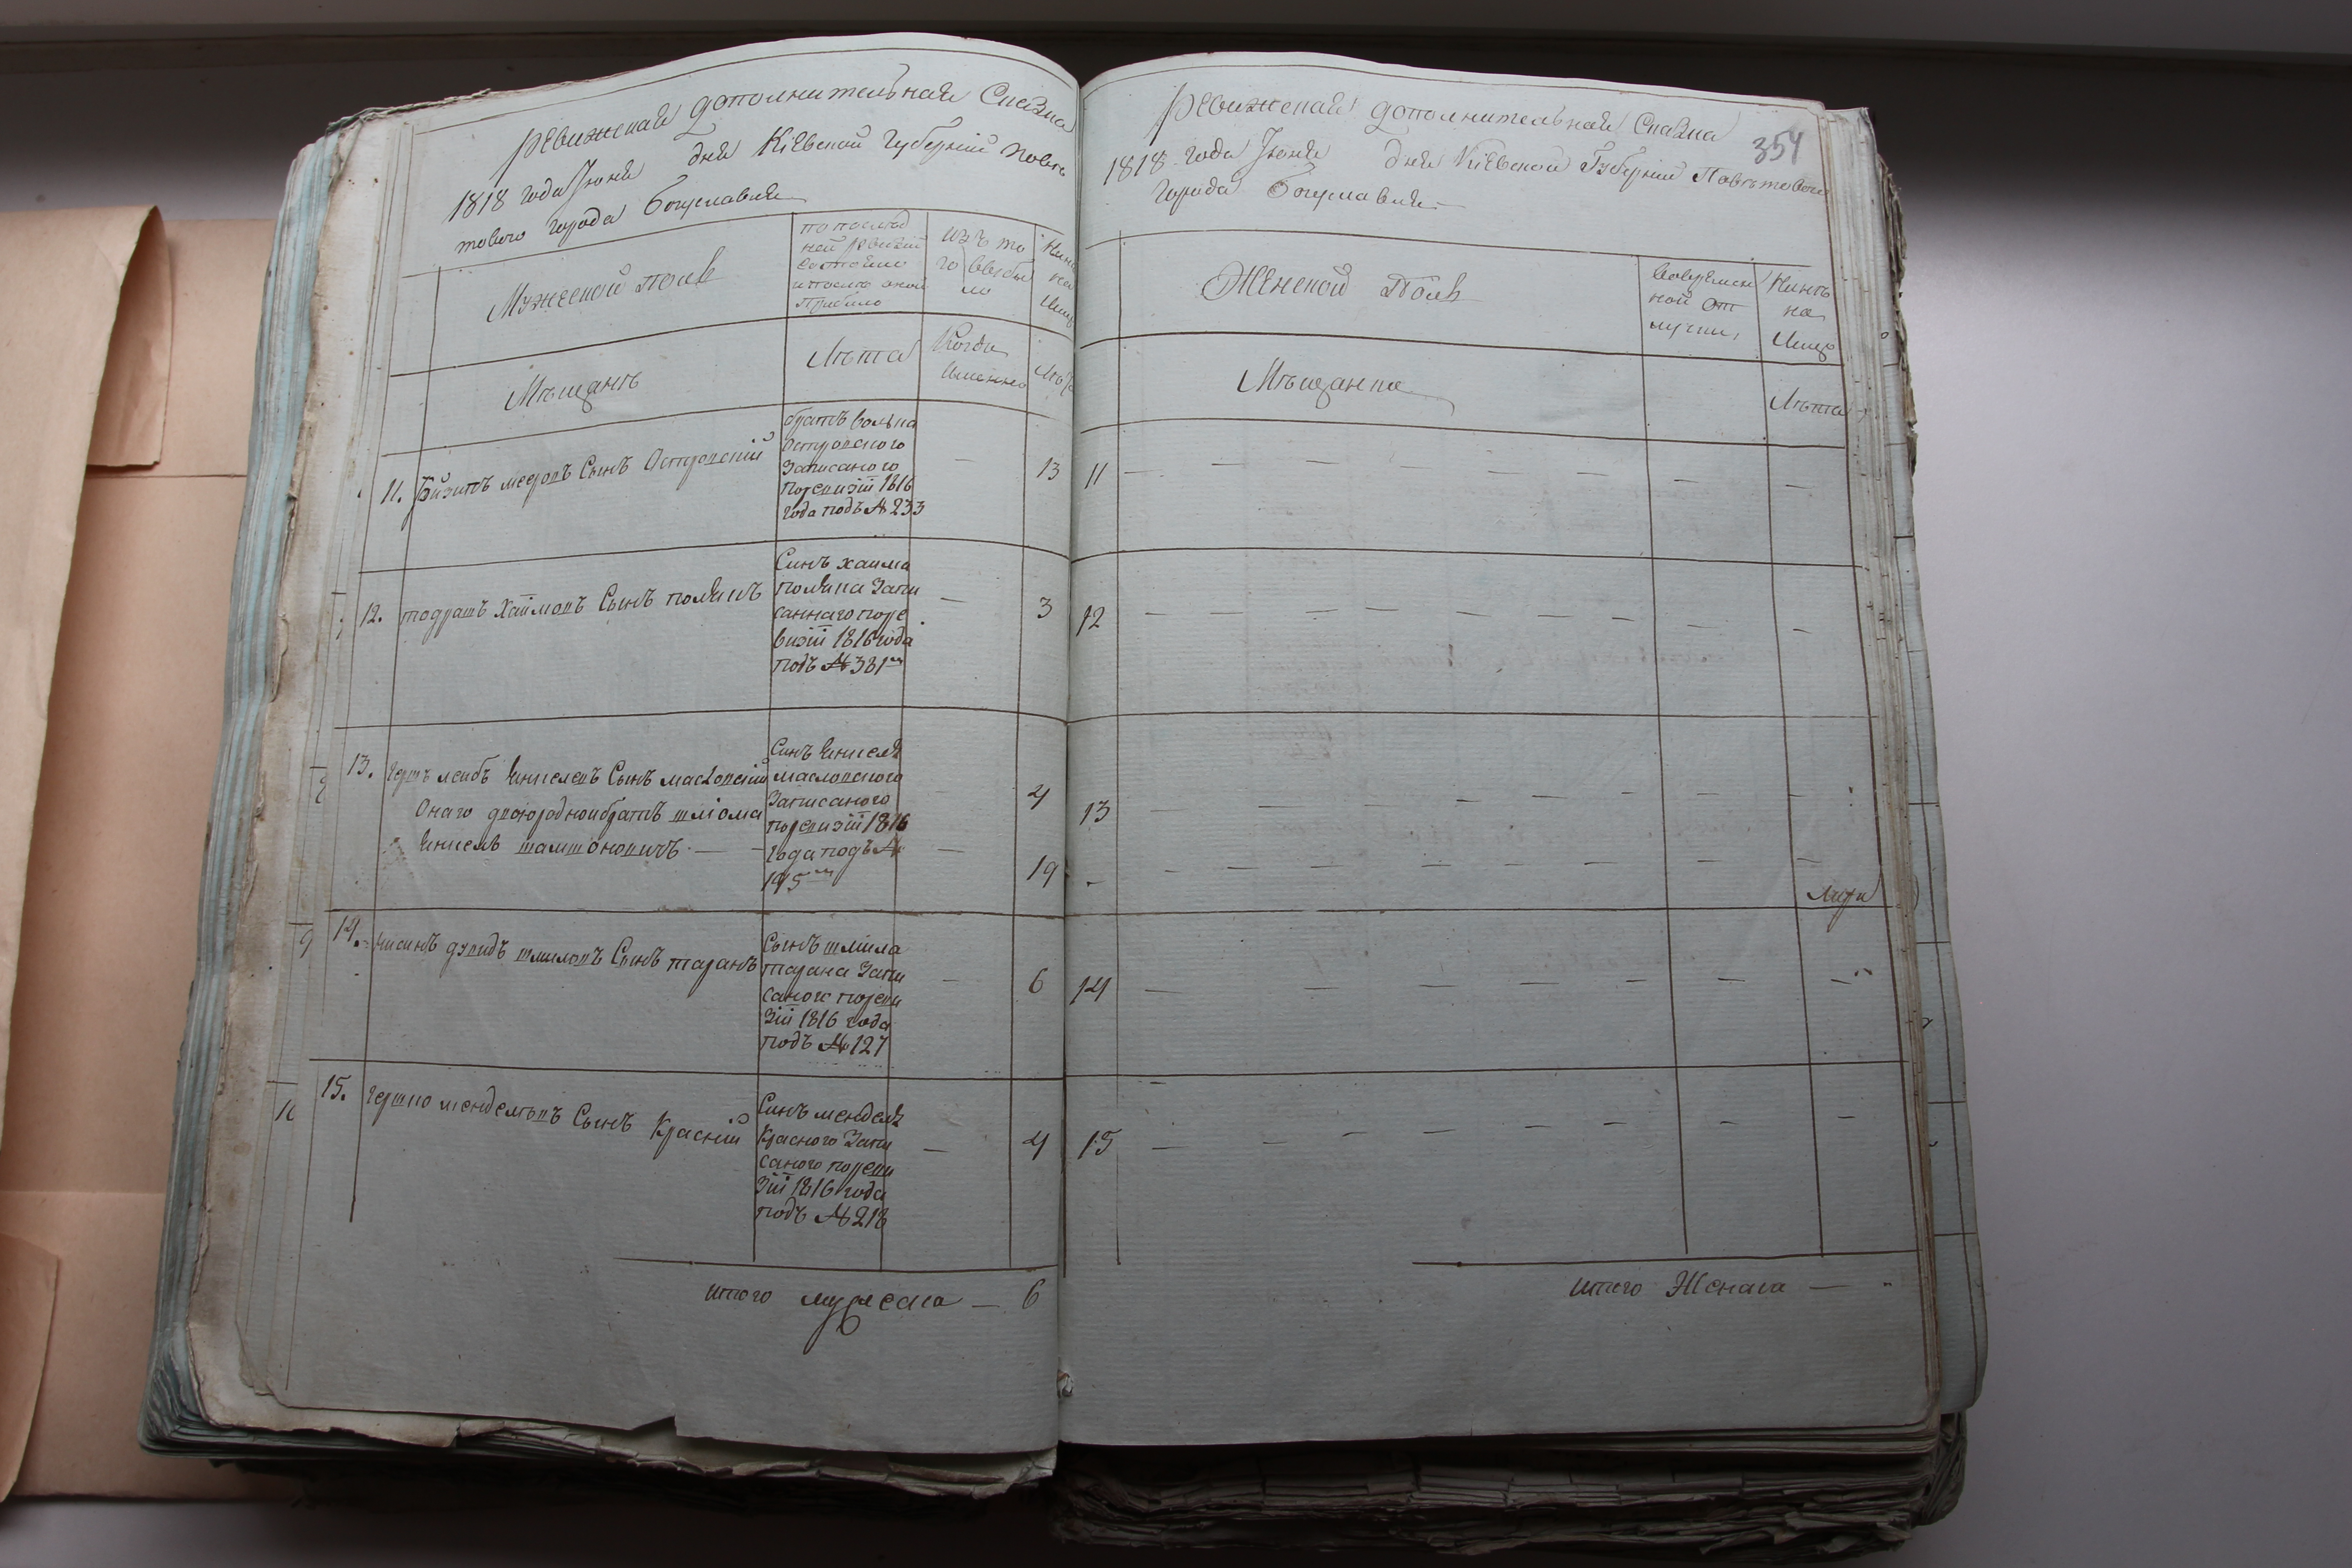 Ревижская дополнительная Сказка
1818 года Июня дня Кіевской Губерніи Повѣ
товаго города Богуславля
Мужеской полъ
по послед
ней ревизіи
состояло
и после оной
прибыло
изъ то
го выбы
ло
Ныне
на
лицо
Мѣщанѣ
Лѣта
Когда
именно
Лѣта
11. сынъ Островскій
братъ
Островского
Записаного
поревизіи 1816
года подъ № 233
— 13
12. тодрашъ Хаймовъ Сынъ полякъ
Синъ хаима
поляка Запи
саннаго поре
визіи 1816 года
подъ № 381м
— 3
13. Гершъ леибъ Янкелевъ Сынъ масловскій
Онаго двоюродной братъ шліома
Янкель
Синъ Янкеля
масловского
Записаного
поревизіи 1816
года подъ №
195м
4
— 19
14. нисинъ дувидъ шмиловъ Сынъ таранъ
Сынъ шмила
тарана Запи
саного пореви
зіи 1816 года
подъ № 127
— 6
15. Гершко менделевъ Сынъ Красній
Синъ менделя
Красного Запи
саного пореви
зіи 1816 года
подъ № 218
— 4
итого мужеска — 6
354
Ревижская дополнительная Сказка
1818 года Июня дня Кіевской Губерніи Повѣтоваго
города Богуславля
Женской Полъ
вовремен
ной от
лучки
Нынѣ
на
лицо
Мѣщанки
Лѣта
11
12
13
14
15
итого Женска —